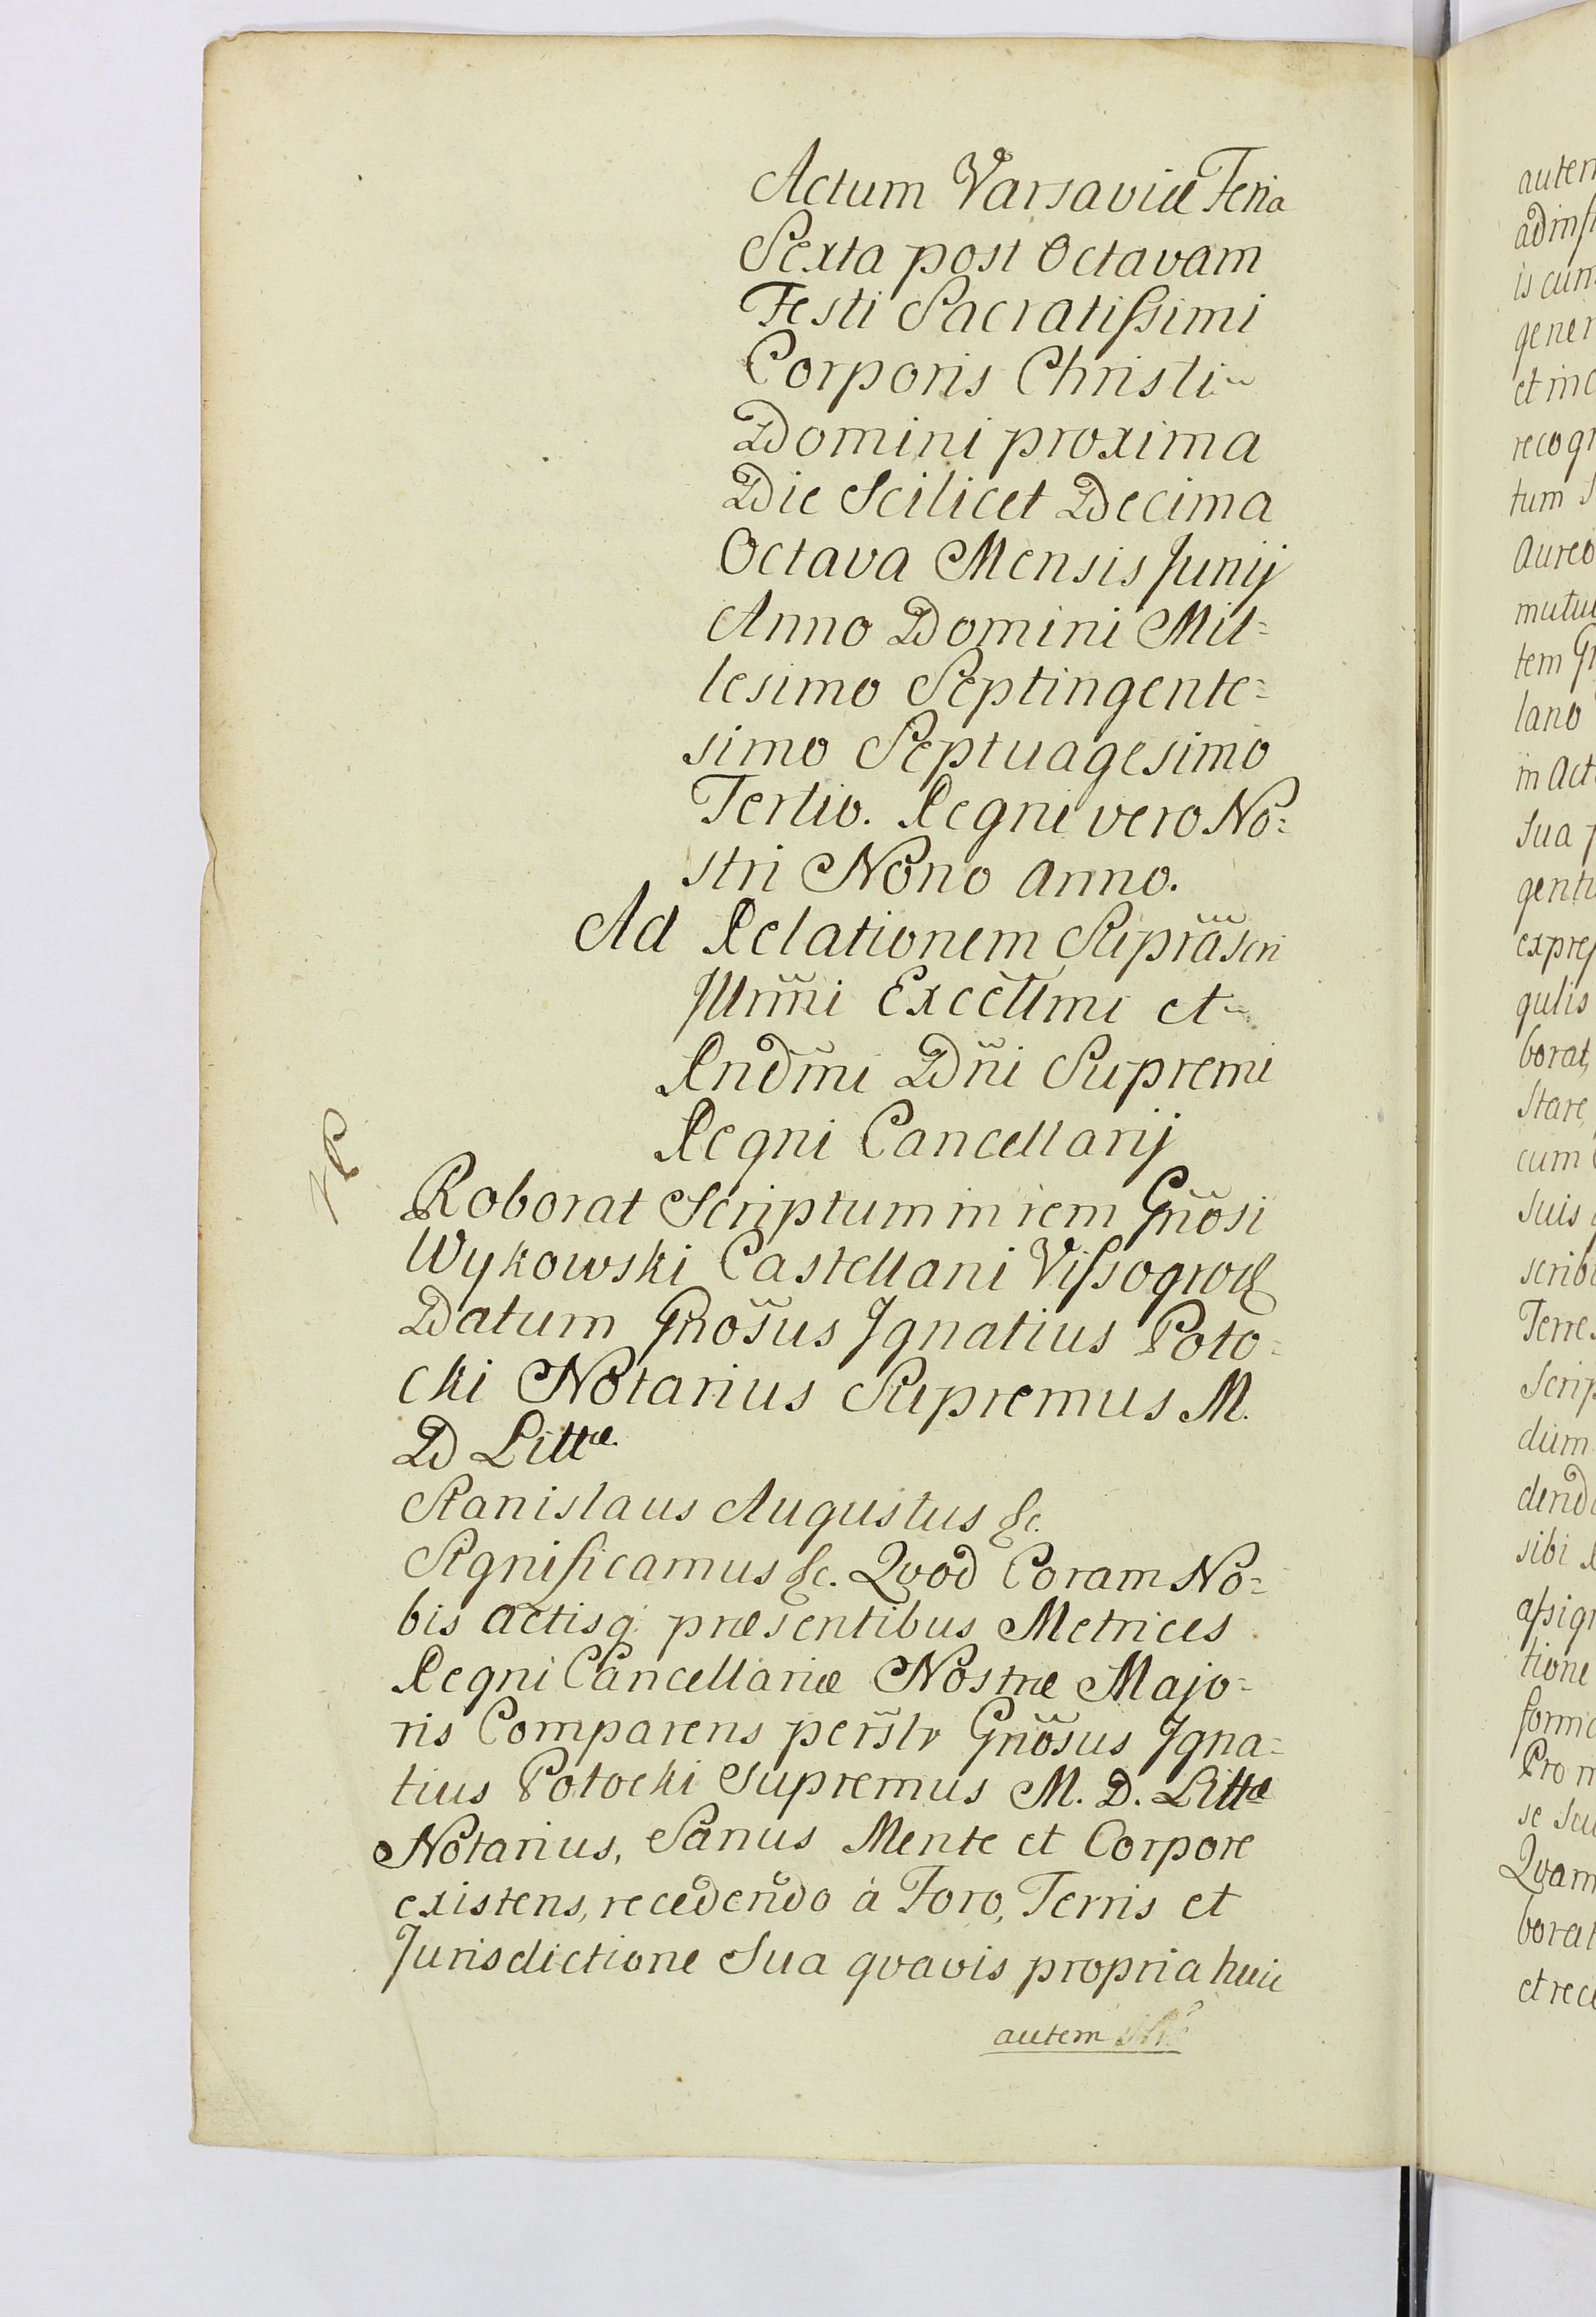 Actum Varsaviæ Feria
Sexta post Octavam
Festi Sacratissimi
Corporis Christi
Domini proxima
Die Scilicet Decima
Octava Mensis Junij
Anno Domini Mil=
lesimo Septingente=
simo Septuagesimo
Tertio. Regni vero No=
stri Nono anno.
Ad Relationem Suprascri
Illrmi Excellmi et
Rndmi Dni Supremi
Regni Cancellarij
Roborat Scriptum in rem Gnosi
Wykowski Castellani Vissogrod
Datum Gnosus Ignatius Poto=
cki Notarius Supremus M.
D Littæ
Stanislaus Augustus &c.
Significamus &c. Qvod Coram No=
bis actisq præsentibus Metrices
Regni Cancellariæ Nostræ Majo=
ris Comparens perslr Gnosus Igna=
tius Potocki Supremus M. D. Littæ
Notarius, Sanus Mente et Corpore
existens, recedendo à Foro, Terris et
Jurisdictione Sua qvavis propria huic
autem
autem
is cum
gener
et in
recogn
tum
aureo
mutuo
tem
lano
in act
sua
genti
gulis
borat,
stare,
cum
suis
scrib
Terre
scrip
dum
dend
sibi
assign
tione
form
Pro
se
Qvam
borat
et rec